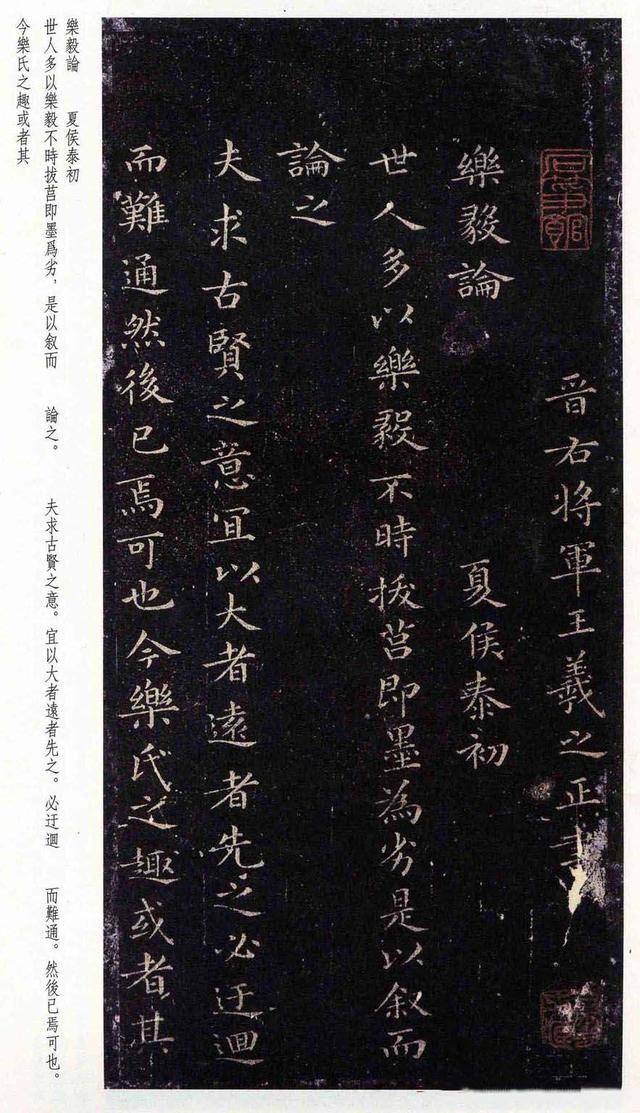 晉右將軍王羲之正書
樂毅論
夏侯泰初
世人多以樂毅不時拔莒即墨為劣是以叙而
論之
夫求古賢之意宜以大者遠者先之必迂迴
而難通然後已焉可也今樂氏之趣或者其
樂毅論 夏侯泰初
世人多以樂毅不時拔莒即墨爲劣，是以叙而 論之。 夫求古賢之意。宜以大者遠者先之。必迂迴 而難通。然後已焉可也。
今樂氏之趣或者其